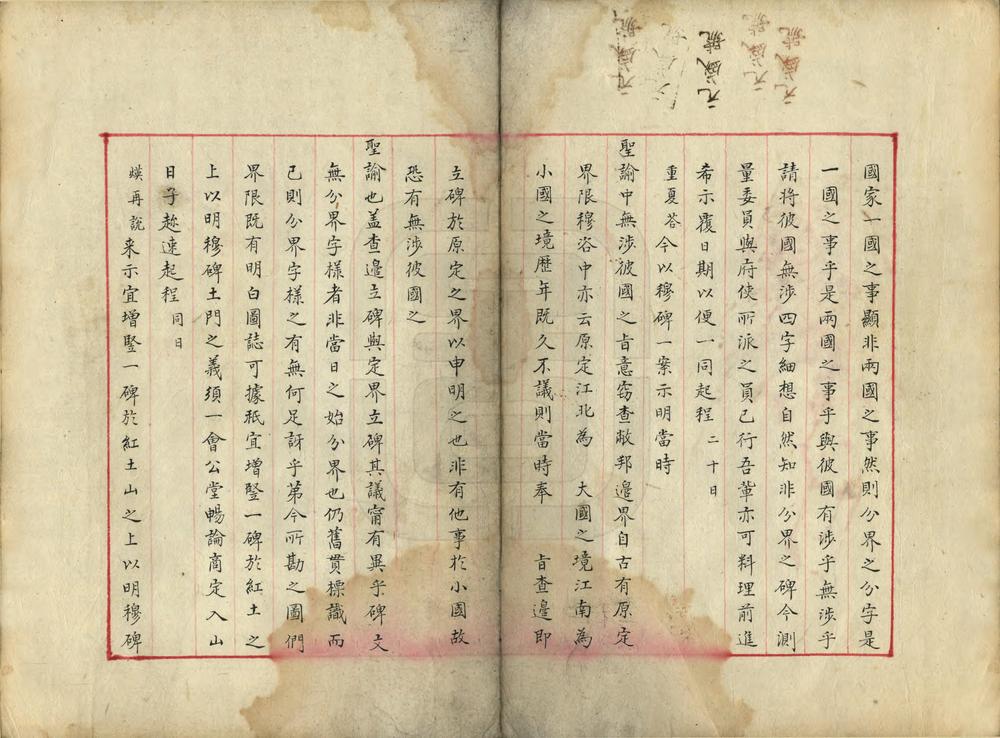 元盛號
元盛號
元盛號
元盛號
國家一國之事顯非兩國之事然則分界之分字是
一國之事乎是兩國之事乎與彼國有涉乎無涉乎
請將彼國無涉四字細想自然知非分界之碑今測
量委員與府使所派之員已行吾輩亦可料理前進
希示覆日期以便一同起程 二十日
重夏答 今以穆碑一案示明當時
聖諭中無涉彼國之旨意竊查敝邦邊界自古有原定
界限穆咨中亦云原定江北為 大國之境江南為
小國之境歷年既久不議則當時奉 旨查邊即
立碑於原定之界以申明之也非有他事於小國故
恐有無涉彼國之
聖諭也蓋查邊立碑與定界立碑其議甯有異乎碑文
無分界字樣者非當日之始分界也仍舊貫標識而
已則分界字樣之有無何足訝乎第今所勘之圖們
界限既有明白圖誌可據祇宜增竪一碑於紅土之
上以明穆碑土門之義須一會公堂暢論商定入山
日子趂速起程 同日
煐再說 来示宜增竪一碑於紅土山之上以明穆碑